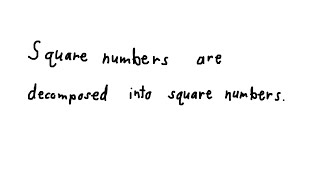 Square numbers are
decomposed into square numbers.